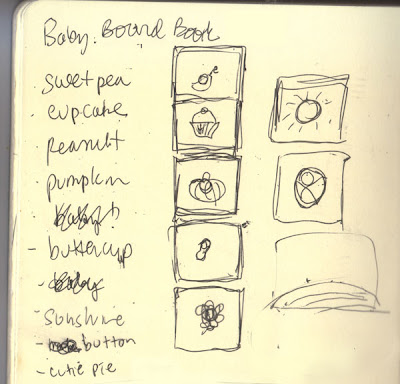 Baby Board Book
sweet pea
cupcake
peanut
pumpkin
- buttercup
- baby
sunshine
- button
- cutie pie